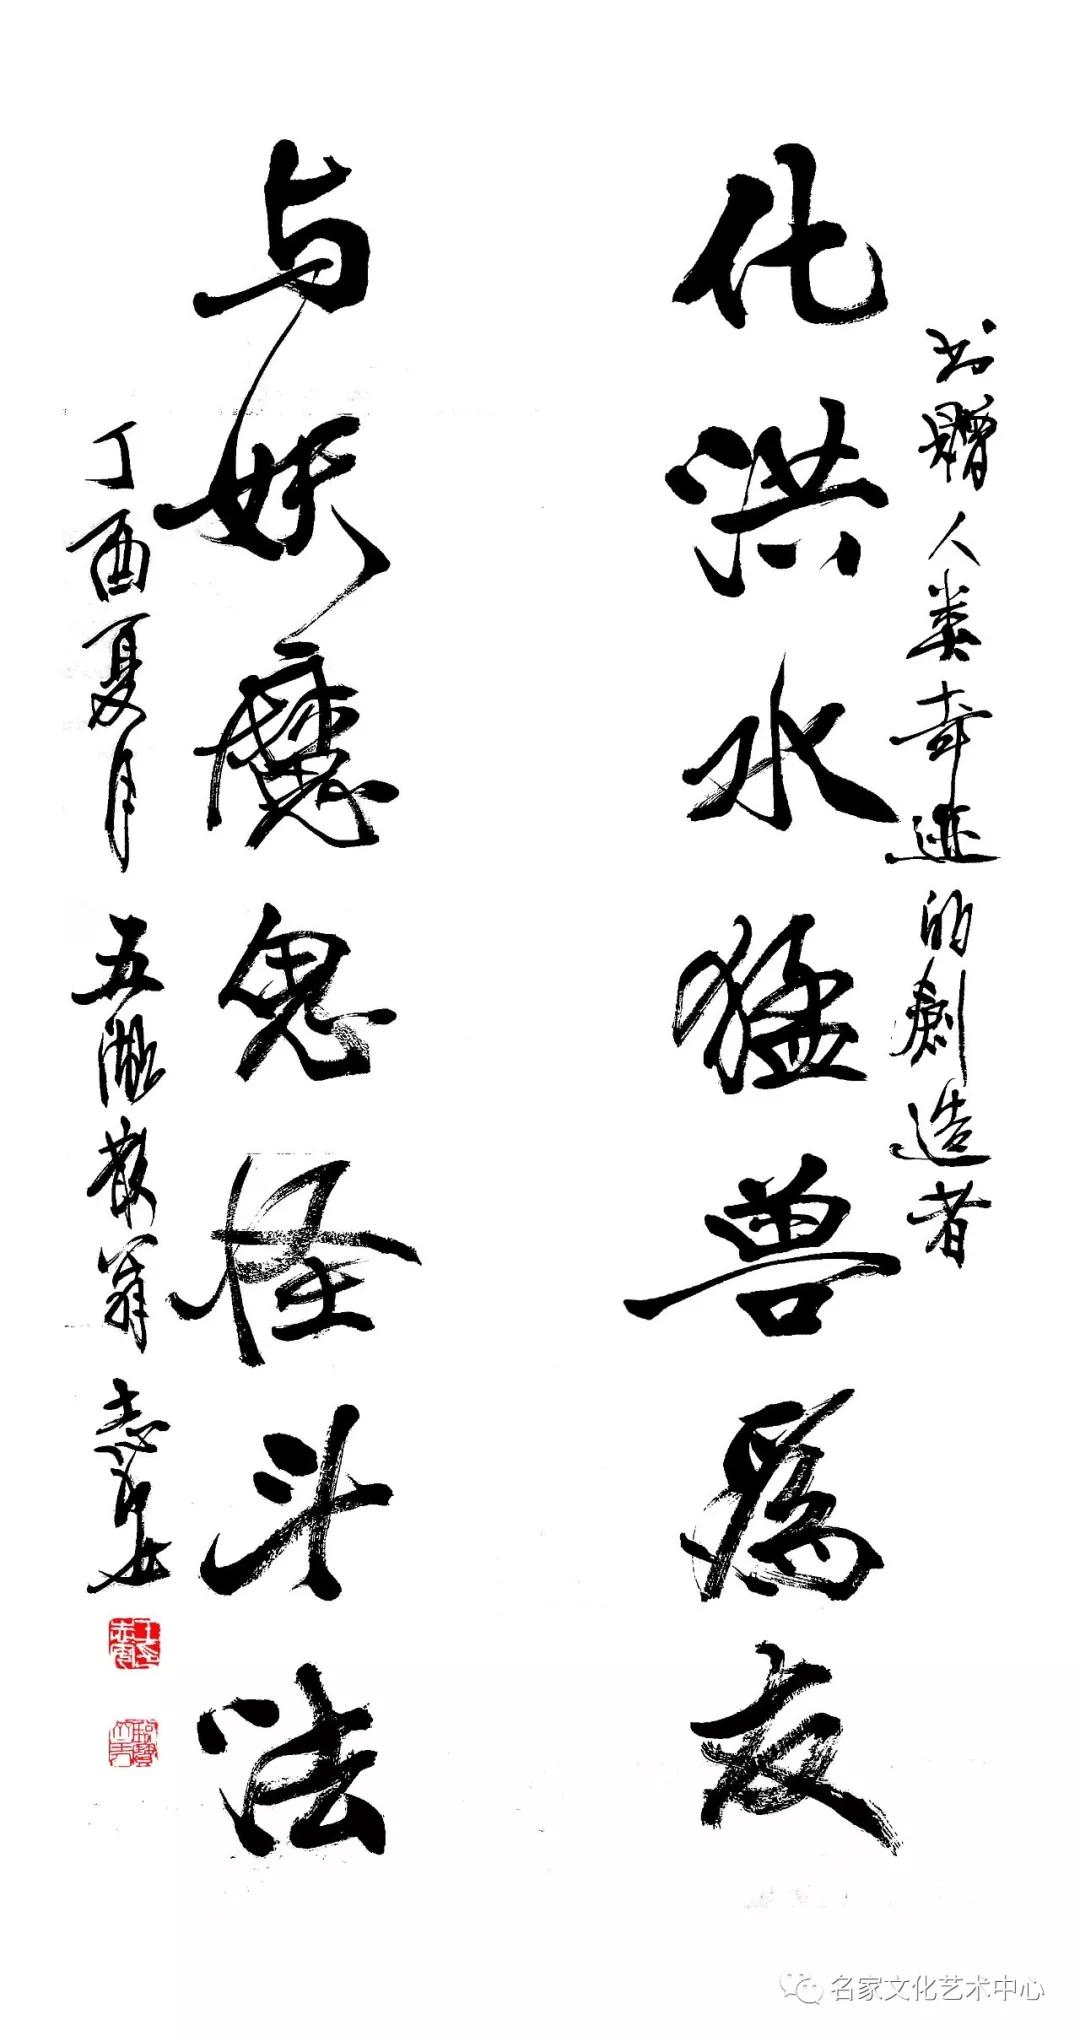 书赠人类奇迹的创造者
化洪水猛兽为友
与妖魔鬼怪斗法
丁酉夏月 五湖散翁 志
名家文化艺术中心